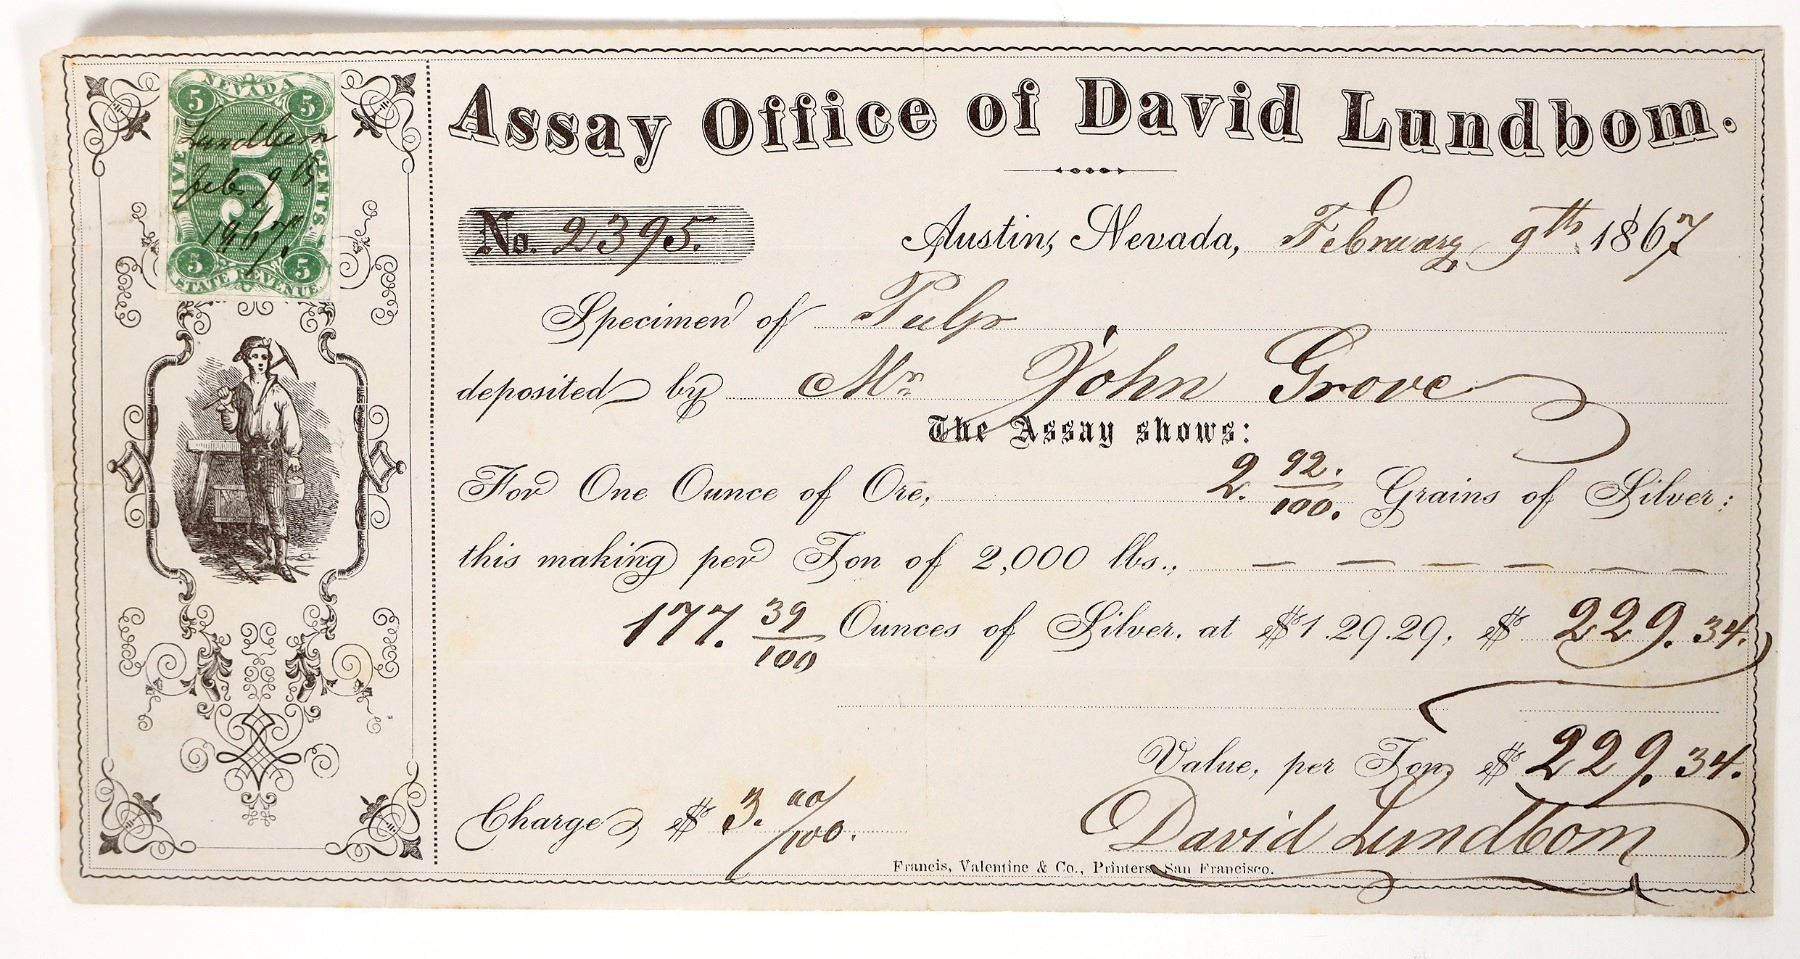 NEVADA
5 5
FIVE CENTS.
5
5 5
STATE REVENUE
Feb. 9th
1867.
Assay Office of David Lundbom.
No. 2395.
Austin, Nevada, February 9th 1867
Specimen of Pulp
deposited by Mr John Grove
The Assay shows:
For One Ounce of Ore, 2. 92/100. Grains of Silver;
this making per Ton of 2,000 lbs., — — — — — —
177. 39/100 Ounces of Silver, at $1.29.29, $ 229.34.
Value, per Ton, $ 229.34.
Charge, $ 3. 00/100.
David Lundbom
Francis, Valentine & Co., Printers, San Francisco.